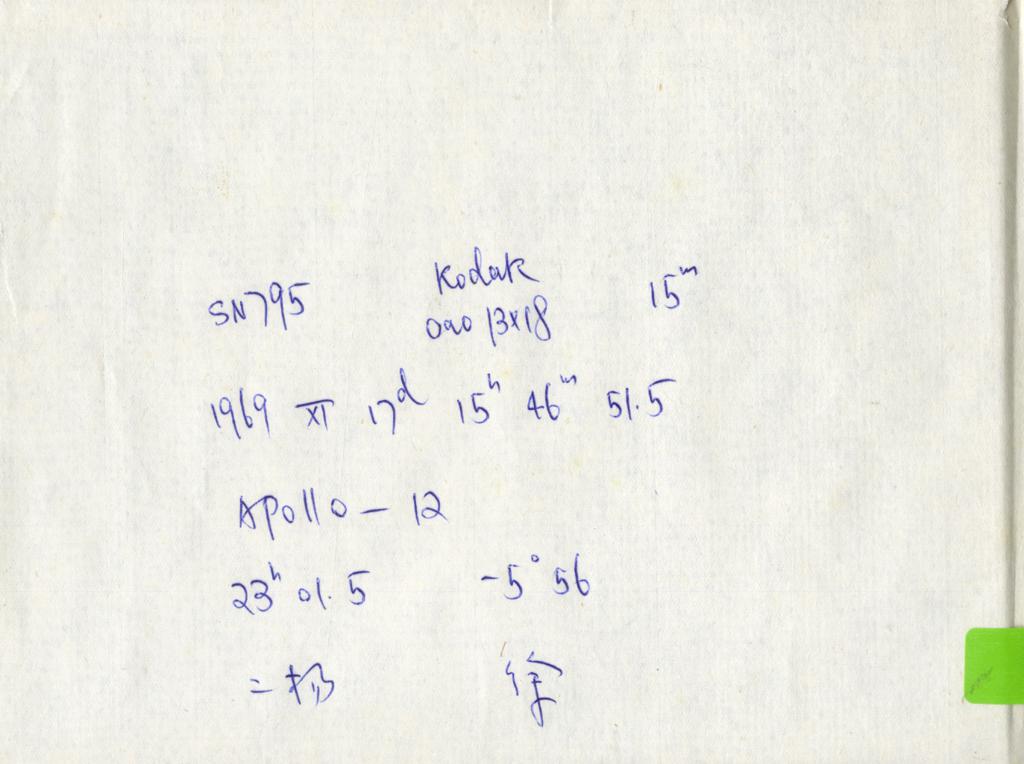 SN795 Kodak 15ᵐ
OaO 13x18
1969 XI 17ᵈ 15ʰ 46ᵐ 51.5
Apollo - 12
23ʰ 01.5 -5° 56
二杨 徐